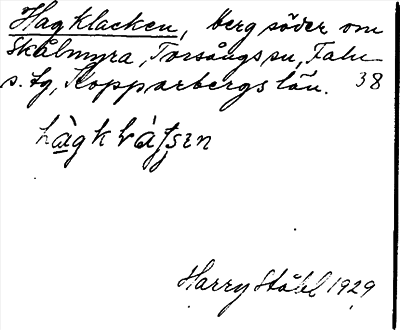 Hagklacken, berg söder om
Skålmyra, Torsångs sn, Falu
s. tg, Kopparbergs län. 38
Harry Ståhl 1929